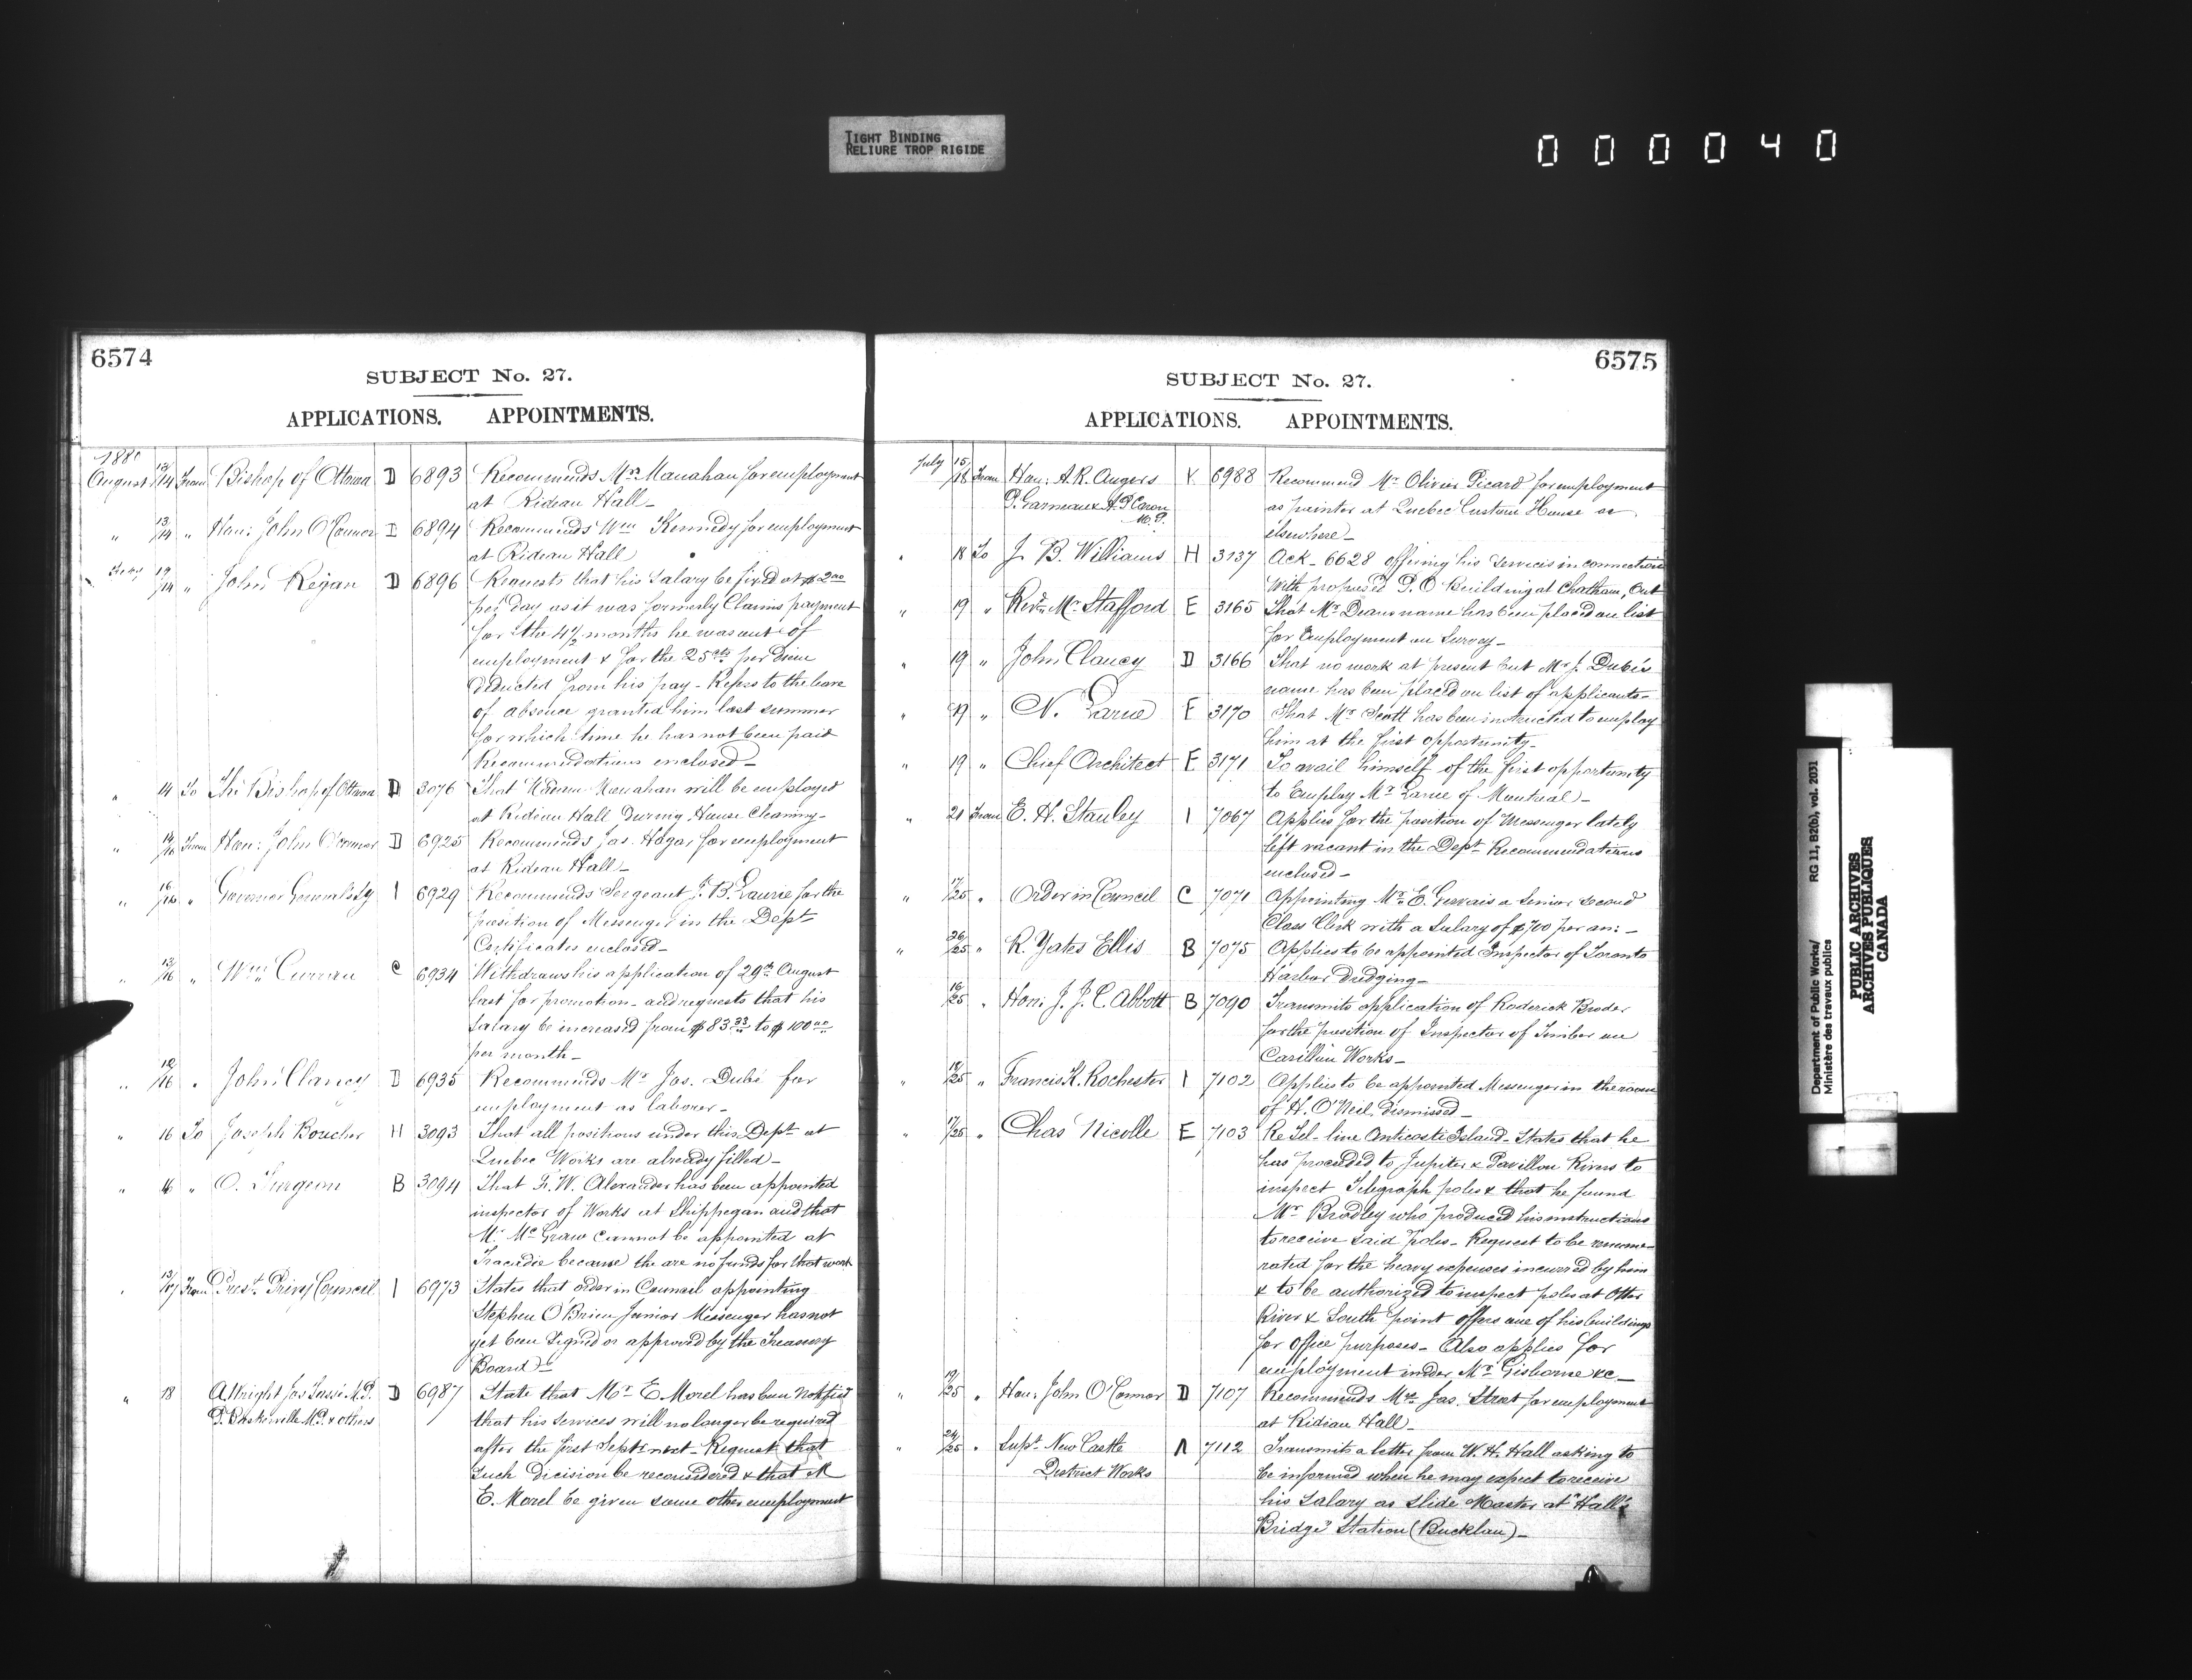 TIGHT BINDING
RELIURE TROP RIGIDE
000040
6574
SUBJECT No. 27.
APPLICATIONS. APPOINTMENTS.
1880
August 13/14 From Bishop of Ottawa D 6893 Recommends Mrs Manahan for employment
at Rideau Hall_
" 13/14 " Hon: John O'Connor D 6894 Recommends Wm Kennedy for employment
at Rideau Hall
" John Regan D 6896 Requests that his Salary be fixed at $2.00
per day as it was formerly Claims payment
for the 4½ months he was out of
employment & for the 25cts per diem
deducted from his pay_ Refers to the leave
of absence granted him last summer
for which time he has not been paid
Recommendations enclosed_
" 14 To The Bishop of Ottawa D 3076 That Madam Manahan will be employed
at Rideau Hall During House Cleaning_
" 14/16 From Hon: John O'Connor D 6925 Recommends Jas. Hogan for employment
at Rideau Hall_
" 16/16 " Governor General's Sy I 6929 Recommends Sergeant J. B. Laurie for the
position of Messenger in the Dept
Certificates enclosed_
" 13/16 " Wm Curran C 6934 Withdraws his application of 29th August
last for promotion_ and requests that his
Salary be increased from $83.33 to $100.00
per month_
" 12/16 " John Clancy D 6935 Recommends Mr Jas. Dubé for
employment as laborer_
" 16 To Joseph Boucher H 3093 That all positions under this Dept at
Quebec Works are already filled_
" 16 " O. Turgeon B 3094 That F. W. Alexander has been appointed
inspector of Works at Shippegan and that
Mr McGraw cannot be appointed at
Tracadie because the are no funds for that work
" 13/17 From Prest Privy Council I 6973 States that order in Council appointing
Stephen O'Brien Junior Messenger has not
yet been Signed or approved by the Treasury
Board_
" 18 A Wright Jos Tassé M.P. D 6987 State that Mr E. Morel has been notified
P. Baskerville M.P. & others that his Services will no longer be required
after the first Sept next_ Request that
such decision be reconsidered & that M
E. Morel be given some other employment
6575
SUBJECT No. 27.
APPLICATIONS. APPOINTMENTS.
July 15/18 From Hon: A. R. Angers 6988 Recommend Mr Olivier Picard for employment
P. Garneau & A. P. Caron as painter at Quebec Custom House or
M.P. elsewhere_
" 18 To J. B. Williams H 3137 Ack_ 6628 offering his Services in connection
With proposed P.O Building at Chatham, Ont
" 19 " Revd Mr Stafford E 3165 That Mr Deans name has been placed on list
for Employment on Survey_
" 19 " John Clancy D 3166 That no work at present but Mr J. Dubé's
name has been placed on list of applicants_
" 19 " N. Larue E 3170 That Mr Scott has been instructed to employ
him at the first opportunity_
" 19 " Chief Architect E 3171 To avail himself of the first opportunity
to Employ Mr Larue of Montreal_
" 21 From E. H. Stanley I 7067 Applies for the position of Messenger lately
left vacant in the Dept Recommendations
enclosed_
" 17/25 " Order in Council C 7071 Appointing Mr E. Gervais a Senior second
Class Clerk with a Salary of $700 per an:_
" 20/25 " R. Yates Ellis B 7075 Applies to be appointed Inspector of Toronto
Harbor Dredging_
" 16/25 " Hon: J. J. C. Abbott B 7090 Transmits application of Roderick Broder
for the position of Inspector of Timber on
Carillon Works_
" 18/25 " Francis K. Rochester I 7102 Applies to be appointed Messenger in the room
of H. O'Neil, dismissed_
" /25 " Chas Nicolle E 7103 Re Tel_ line Anticosti Island_ States that he
has proceeded to Jupiter & Pavillon Rivers to
inspect Telegraph poles & that he found
Mr Bradley who produced his instructions
to receive said poles_ Request to be remune-
rated for the heavy expenses incurred by him
& to be authorized to inspect poles at Otter
River & South point offers one of his buildings
for office purposes_ Also applies for
employment under Mr Gisborne &c_
" 19/25 " Hon: John O'Connor D 7107 Recommends Mrs Jas. Street for employment
at Rideau Hall_
" 24/25 " Supt New Castle A 7112 Transmits a letter from W. H. Hall asking to
District Works be informed when he may expect to receive
his Salary as Slide Master at "Hall's
Bridge" Station (Bucklau)_
Department of Public Works/ RG 11, B2(b), vol. 2031
Ministère des travaux publics
PUBLIC ARCHIVES
ARCHIVES PUBLIQUES
CANADA